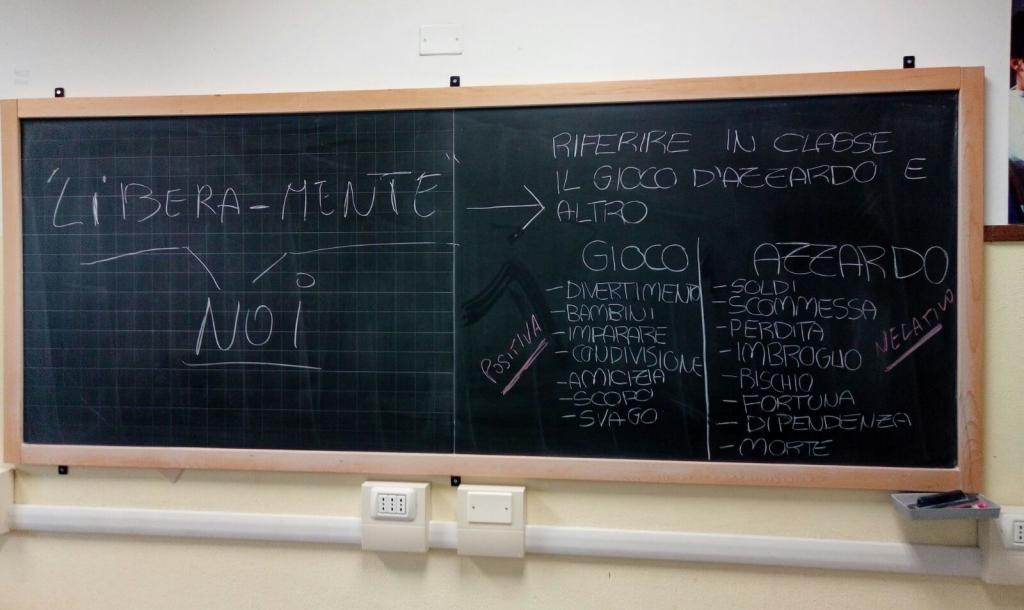 "LIBERA-MENTE"
NOI
RIFERIRE IN CLASSE
IL GIOCO D'AZZARDO E
ALTRO
GIOCO
- DIVERTIMENTO
- BAMBINI
- IMPARARE
- CONDIVISIONE
- AMICIZIA
- SCOPO
- SVAGO
POSITIVA
AZZARDO
- SOLDI
- SCOMMESSA
- PERDITA
- IMBROGLIO
- RISCHIO
- FORTUNA
- DIPENDENZA
- MORTE
NEGATIVO